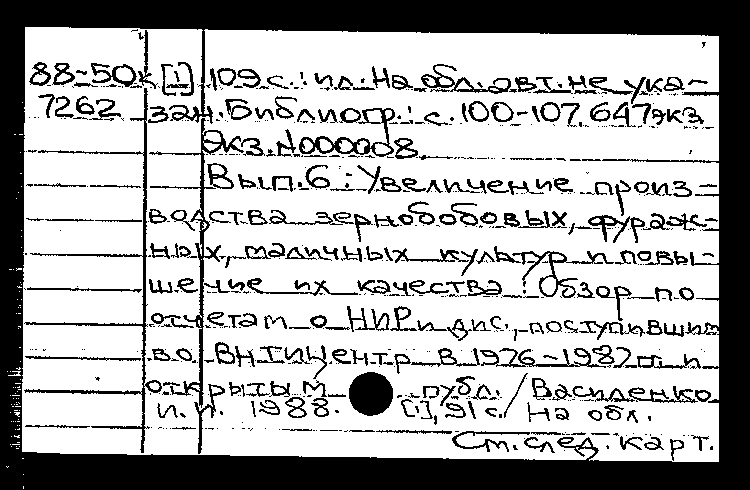 88-50к [1], 109 с. : ил. На обл. авт. не ука-
7262 зан. Библиогр.: с. 100-107. 647 экз
Экз. N000008.
Вып. 6 : Увеличение произ-
водства зернобобовых, фураж-
ных, масличных культур и повы-
шение их качества : Обзор по
отчетам о НИР и дис., поступившим
во ВНТИЦентр в 1976-1987 гг и
открытым публ. / Василенко
И. И. 1988. [1], 91 с. / На обл.
См. след. карт.